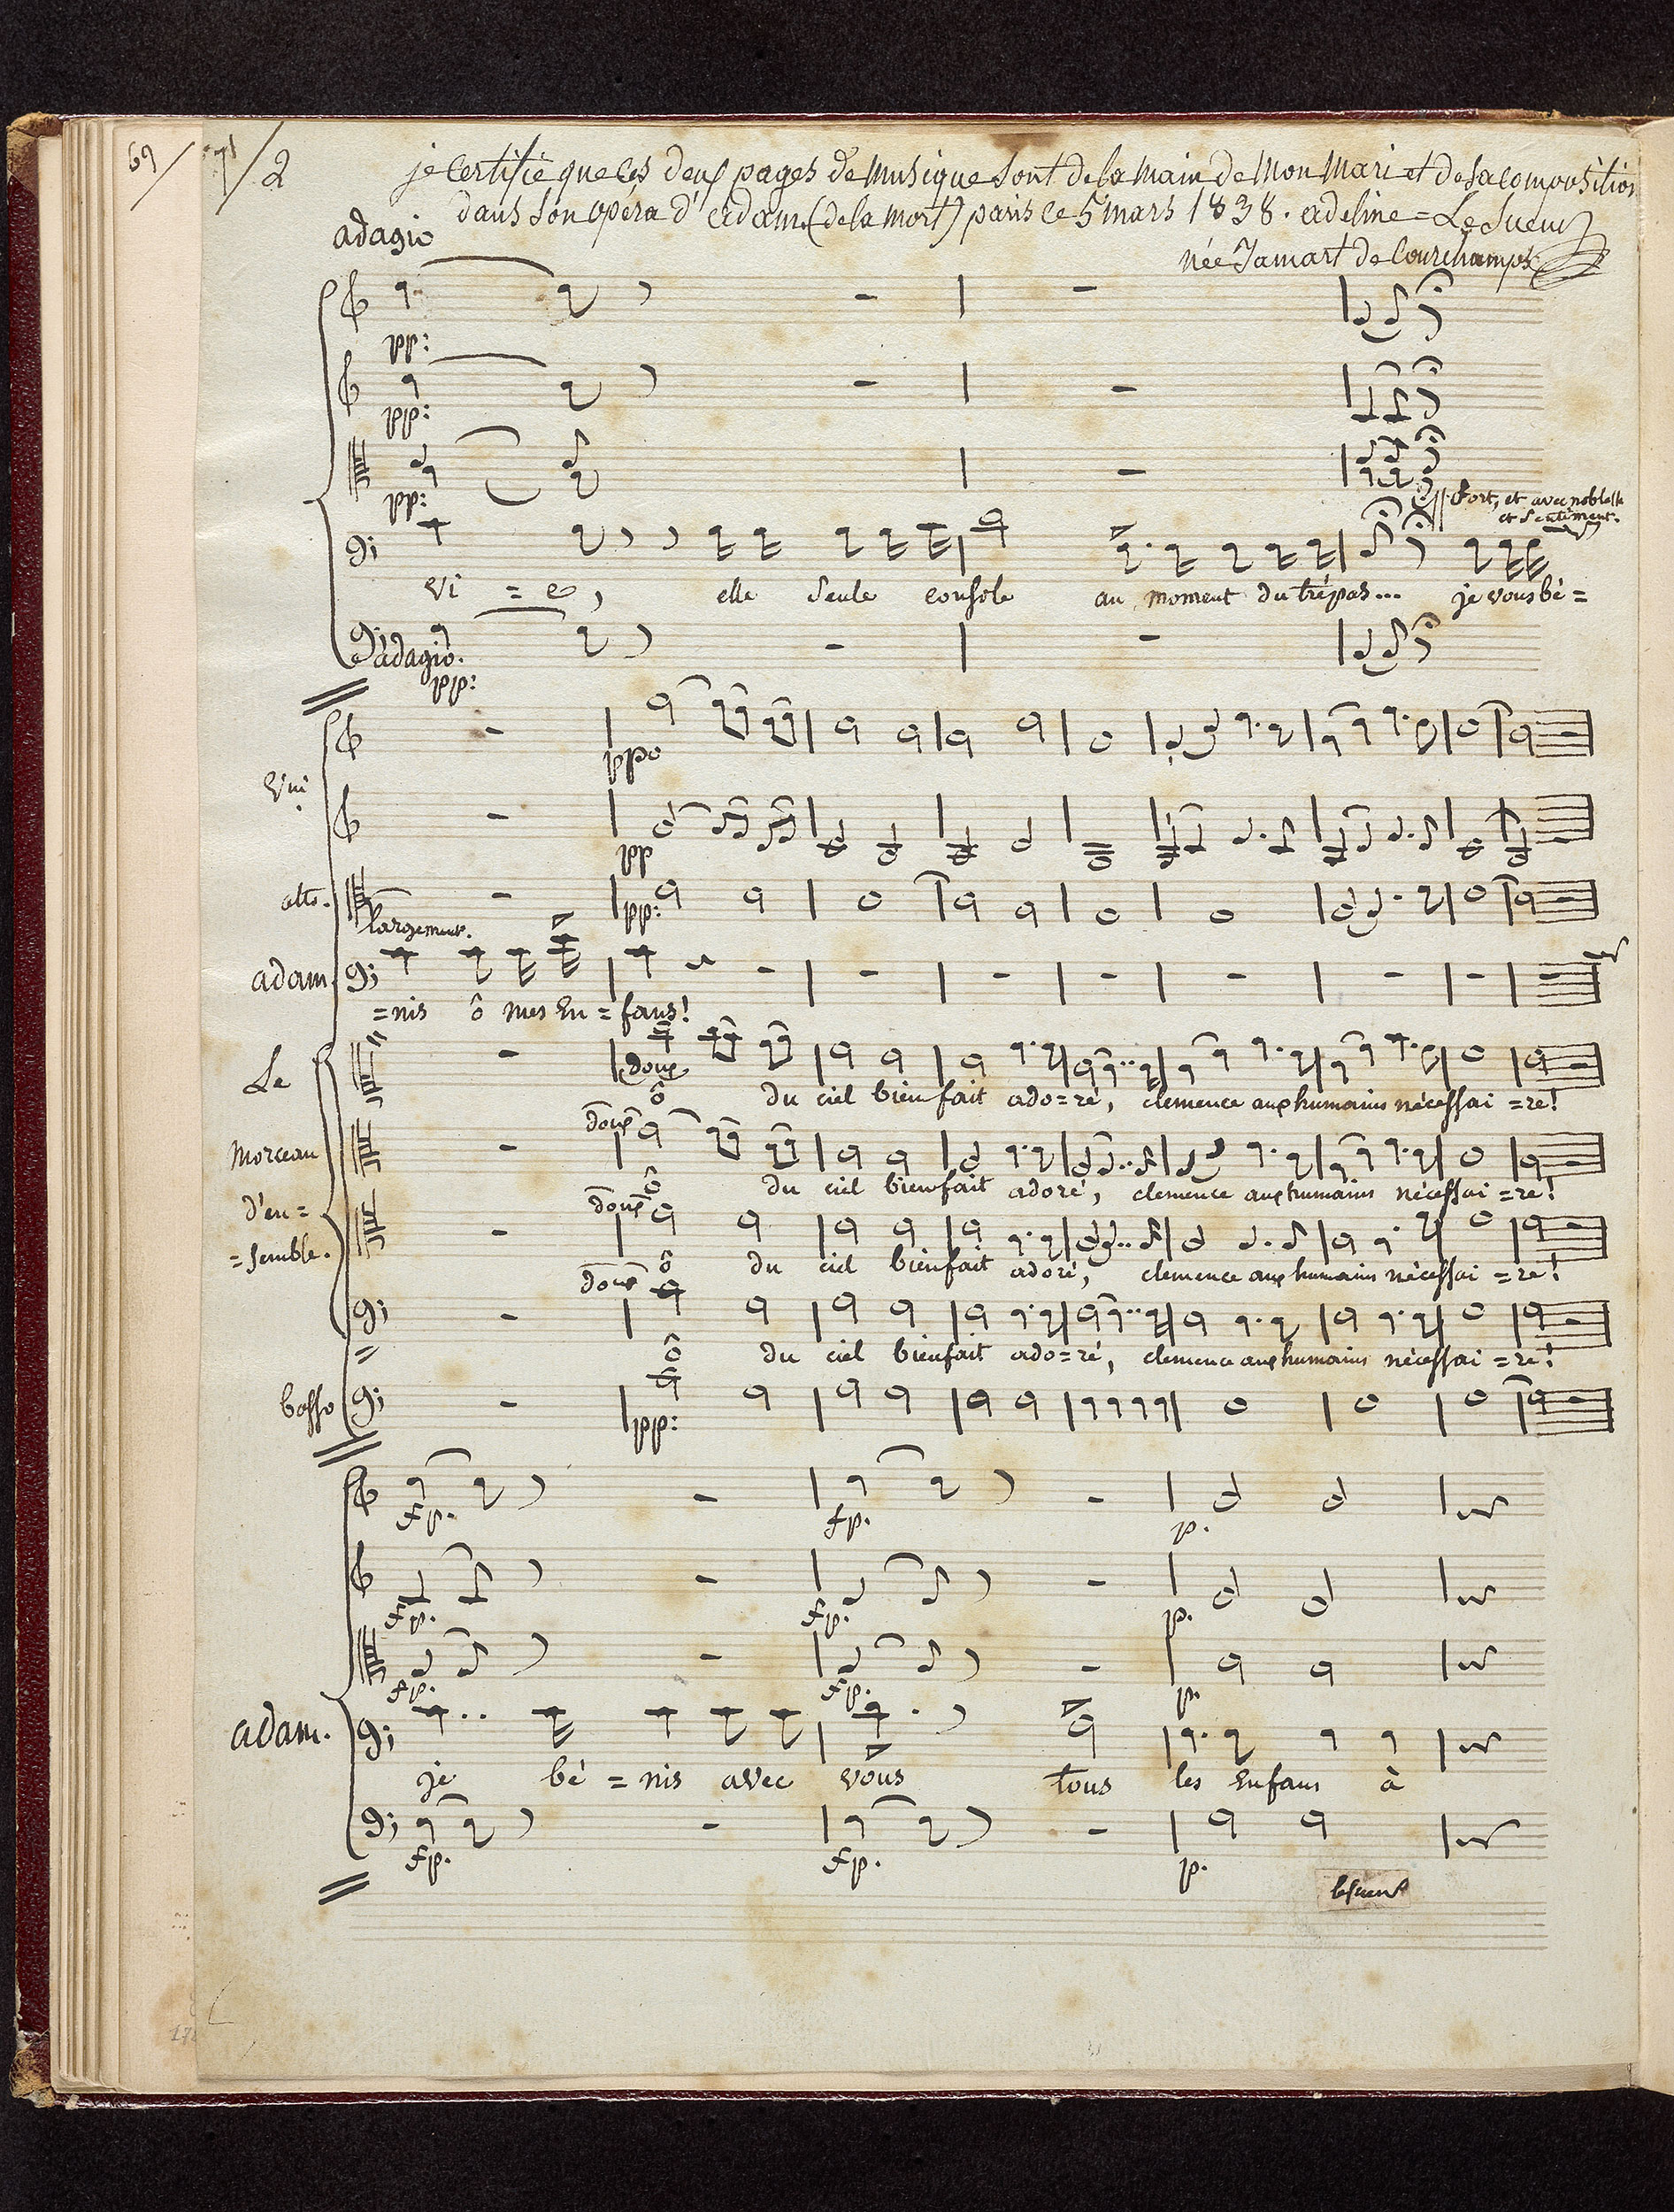 69/ 71/2
je certifie que ces deux pages de musique sont de la main de mon mari et de sa composition
dans son opéra d'adam (de la mort) paris ce 5 mars 1838. adeline = Le Sueur
née Jamart de Courchamps
adagio
pp:
pp:
pp:
Fort, et avec noblesse
et sentiment.
vi = e, elle seule console au moment du trépas... je vous bé =
adagio.
pp:
Vni
ppo
pp
alto.
pp:
largement.
adam.
= nis ô mes en = fans!
Le
doux
ô du ciel bienfait ado = ré, clemence aux humains nécessai = re!
morceau
doux
ô du ciel bienfait adoré, clemence aux humains nécessai = re!
d'en =
= semble.
doux
ô du ciel bienfait adoré, clemence aux humains nécessai = re!
doux
ô du ciel bienfait ado = ré, clemence aux humains nécessai = re!
basso
pp:
fp. fp. p.
fp. fp. p.
fp. fp. p.
adam.
je bé = nis avec vous tous les enfans à
fp. fp. p.
lesueur